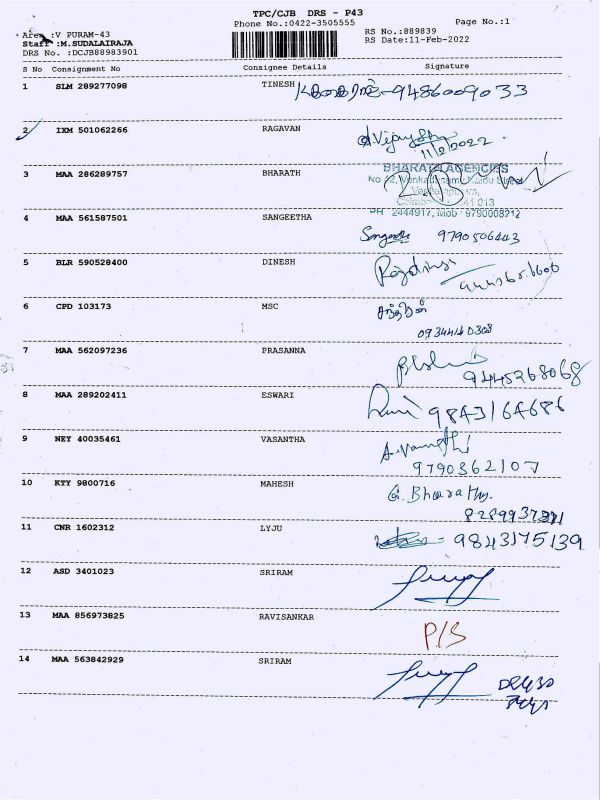 TPC/CJB DRS - P43
Phone No.:0422-3505555
Page No.:1
Area :V PURAM-43
Staff :M.SUDALAIRAJA
DRS No. :DCJB88983901
RS No.:889839
RS Date:11-Feb-2022
S No Consignment No Consignee Details Signature
1 SLM 289277098 TINESH 9486009033
2 IXM 501062266 RAGAVAN
11/2/2022
3 MAA 286289757 BHARATH BHARATH AGENCIES
PH 2444917, Mob 9790008212
4 MAA 561587501 SANGEETHA
Sangeetha 9790506443
5 BLR 590528400 DINESH
6 CPD 103173 MSC
7 MAA 562097236 PRASANNA
9445268068
8 MAA 289202411 ESWARI
9843164686
9 NEY 40035461 VASANTHA
9790362107
10 KTY 9800716 MAHESH G. Bharathy.
11 CNR 1602312 LYJU 9843175139
12 ASD 3401023 SRIRAM
13 MAA 856973825 RAVISANKAR
P/S
14 MAA 563842929 SRIRAM